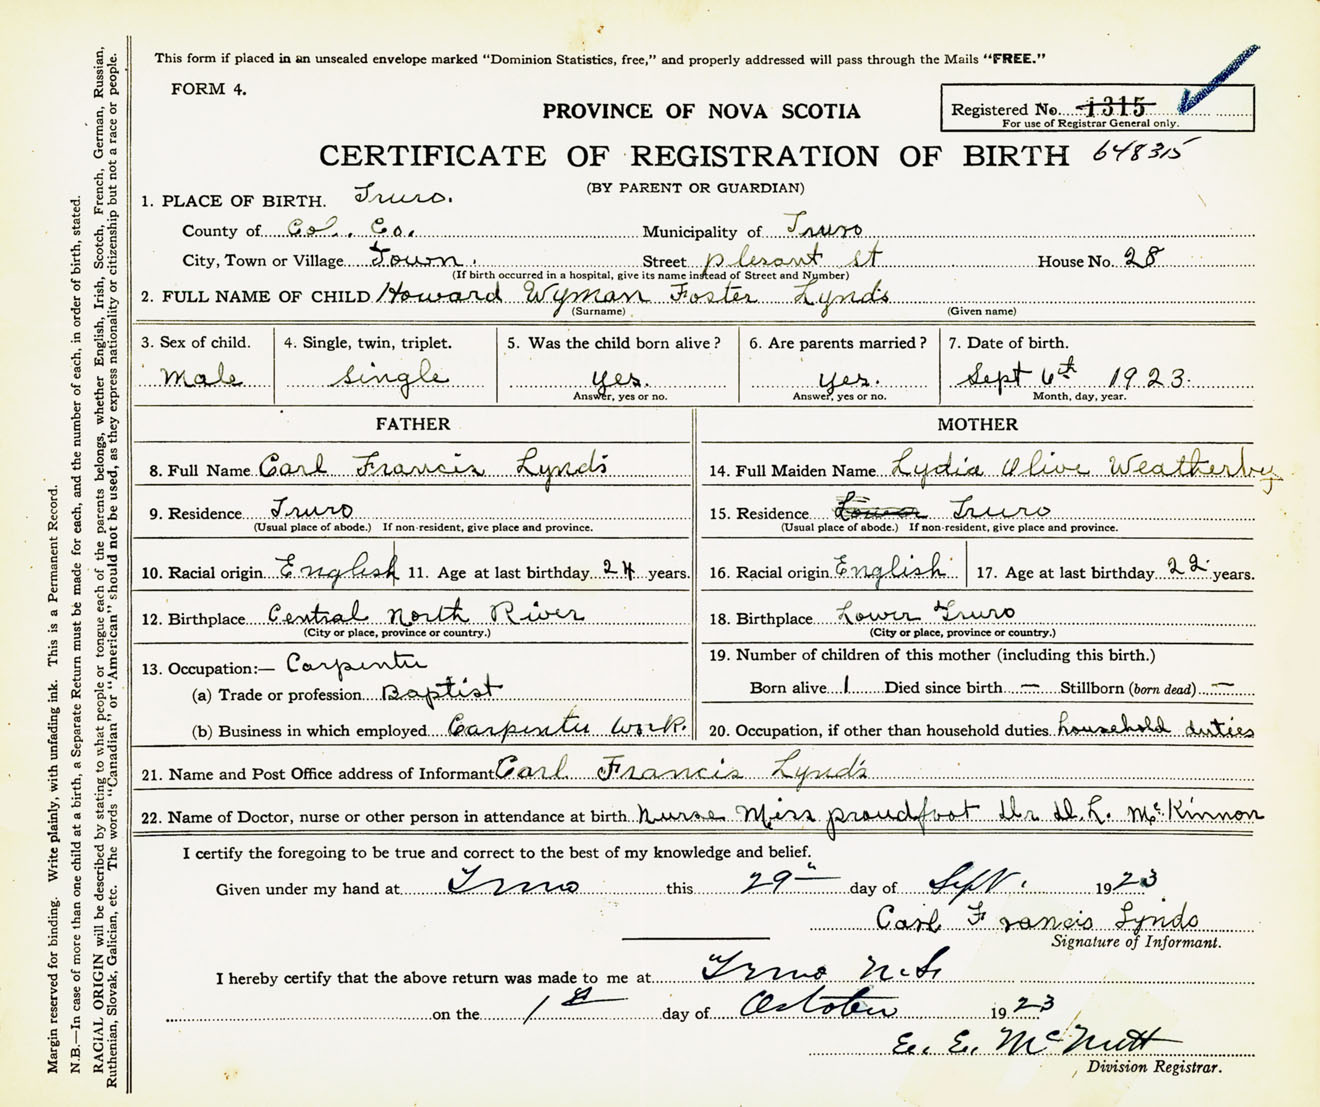 This form if placed in an unsealed envelope marked "Dominion Statistics, free," and properly addressed will pass through the Mails "FREE."
FORM 4.
PROVINCE OF NOVA SCOTIA
Registered No. 1315
For use of Registrar General only.
CERTIFICATE OF REGISTRATION OF BIRTH 648315
(BY PARENT OR GUARDIAN)
1. PLACE OF BIRTH. Truro.
County of Col. Co. Municipality of Truro
City, Town or Village Town. Street plesant st House No. 28
(If birth occurred in a hospital, give its name instead of Street and Number)
2. FULL NAME OF CHILD Howard Wyman Foster Lynds
(Surname) (Given name)
3. Sex of child. 4. Single, twin, triplet. 5. Was the child born alive? 6. Are parents married? 7. Date of birth.
Male single yes. yes. Sept 6th 1923.
Answer, yes or no. Answer, yes or no. Month, day, year.
FATHER MOTHER
8. Full Name Carl Francis Lynds 14. Full Maiden Name Lydia Olive Weatherby
9. Residence Truro 15. Residence Truro
(Usual place of abode.) If non-resident, give place and province. (Usual place of abode.) If non-resident, give place and province.
10. Racial origin English 11. Age at last birthday 24 years. 16. Racial origin English 17. Age at last birthday 22 years.
12. Birthplace Central North River 18. Birthplace Lower Truro
(City or place, province or country.) (City or place, province or country.)
13. Occupation:— Carpenter 19. Number of children of this mother (including this birth.)
(a) Trade or profession Baptist Born alive 1 Died since birth — Stillborn (born dead) —
(b) Business in which employed Carpenter work. 20. Occupation, if other than household duties household duties
21. Name and Post Office address of Informant Carl Francis Lynds
22. Name of Doctor, nurse or other person in attendance at birth Nurse Miss proudfoot Dr D. L. McKinnon
I certify the foregoing to be true and correct to the best of my knowledge and belief.
Given under my hand at Truro this 29th day of Sept. 1923
Carl Francis Lynds
Signature of Informant.
I hereby certify that the above return was made to me at Truro N.S.
on the 1st day of October 1923
E. E. McNutt
Division Registrar.
Margin reserved for binding. Write plainly, with unfading ink. This is a Permanent Record.
N.B.—In case of more than one child at a birth, a Separate Return must be made for each, and the number of each, in order of birth, stated.
RACIAL ORIGIN will be described by stating to what people or tongue each of the parents belongs, whether English, Irish, Scotch, French, German, Russian,
Ruthenian, Slovak, Galician, etc. The words "Canadian" or "American" should not be used, as they express nationality or citizenship but not a race or people.